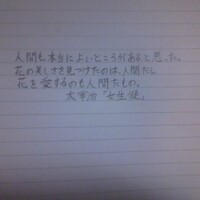 人間も、本当によいところがあると思った。
花の美しさを見つけたのは、人間だし
花を愛するのも人間だもの。
太宰治「女生徒」